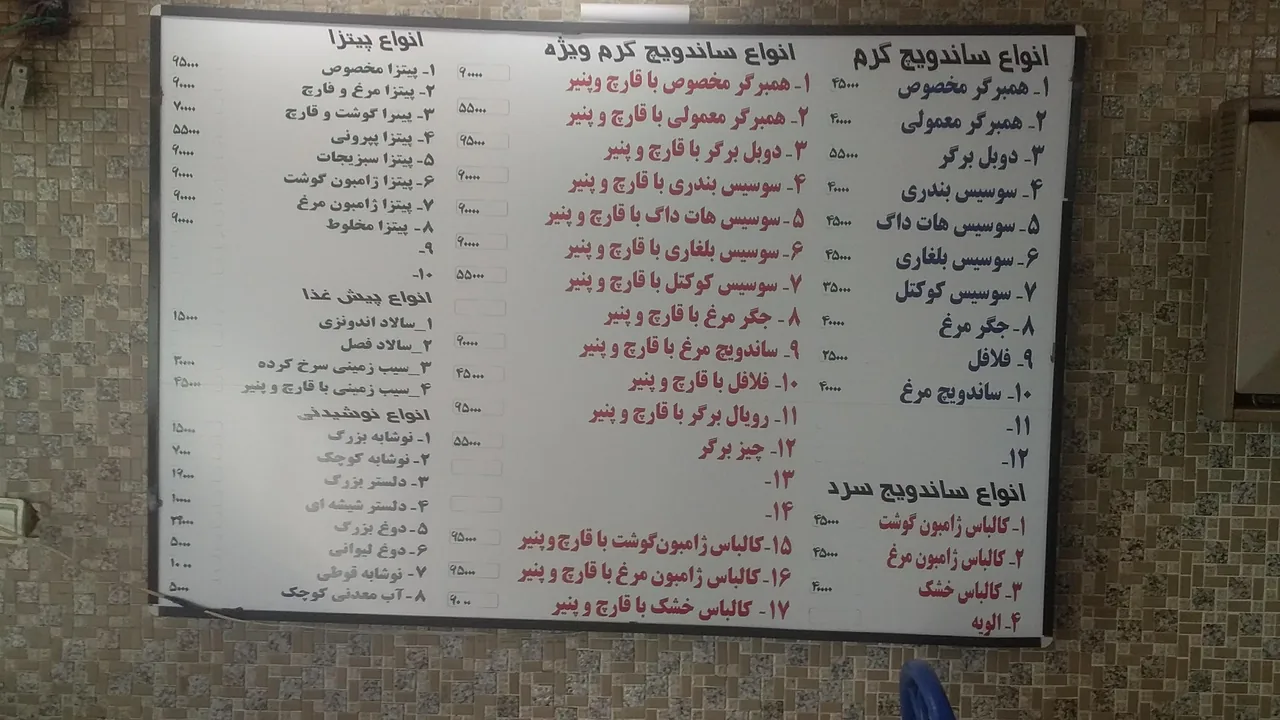 انواع ساندویچ گرم
۱ـ همبرگر مخصوص ۴۵۰۰۰
۲ـ همبرگر معمولی ۴۰۰۰۰
۳ـ دوبل برگر ۵۵۰۰۰
۴ـ سوسیس بندری ۴۰۰۰۰
۵ـ سوسیس هات داگ ۴۵۰۰۰
۶ـ سوسیس بلغاری ۴۵۰۰۰
۷ـ سوسیس کوکتل ۳۵۰۰۰
۸ـ جگر مرغ ۴۰۰۰۰
۹ـ فلافل ۲۵۰۰۰
۱۰ـ ساندویچ مرغ ۴۰۰۰۰
۱۱ـ
۱۲ـ
انواع ساندویچ سرد
۱ـ کالباس ژامبون گوشت ۴۵۰۰۰
۲ـ کالباس ژامبون مرغ ۴۵۰۰۰
۳ـ کالباس خشک ۴۰۰۰۰
۴ـ الویه
انواع ساندویچ گرم ویژه
۱ـ همبرگر مخصوص با قارچ وپنیر ۹۰۰۰۰
۲ـ همبرگر معمولی با قارچ و پنیر ۵۵۰۰۰
۳ـ دوبل برگر با قارچ و پنیر ۹۵۰۰۰
۴ـ سوسیس بندری با قارچ و پنیر ۹۰۰۰۰
۵ـ سوسیس هات داگ با قارچ و پنیر ۹۰۰۰۰
۶ـ سوسیس بلغاری با قارچ و پنیر ۹۰۰۰۰
۷ـ سوسیس کوکتل با قارچ و پنیر ۵۵۰۰۰
۸ـ جگر مرغ با قارچ و پنیر
۹ـ ساندویچ مرغ با قارچ و پنیر ۹۰۰۰۰
۱۰ـ فلافل با قارچ و پنیر ۴۵۰۰۰
۱۱ـ رویال برگر با قارچ و پنیر ۹۵۰۰۰
۱۲ـ چیز برگر ۵۵۰۰۰
۱۳ـ
۱۴ـ
۱۵ـ کالباس ژامبون گوشت با قارچ وپنیر ۹۵۰۰۰
۱۶ـ کالباس ژامبون مرغ با قارچ وپنیر ۹۵۰۰۰
۱۷ـ کالباس خشک با قارچ و پنیر
انواع پیتزا
۱ـ پیتزا مخصوص ۹۵۰۰۰
۲ـ پیتزا مرغ و قارچ ۹۰۰۰۰
۳ـ پیتزا گوشت و قارچ ۷۰۰۰۰
۴ـ پیتزا پپرونی ۵۵۰۰۰
۵ـ پیتزا سبزیجات ۹۰۰۰۰
۶ـ پیتزا ژامبون گوشت ۹۰۰۰۰
۷ـ پیتزا ژامبون مرغ ۹۰۰۰۰
۸ـ پیتزا مخلوط ۹۰۰۰۰
۹ـ
۱۰ـ
انواع پیش غذا
۱_سالاد اندونزی ۱۵۰۰۰
۲_سالاد فصل
۳_سیب زمینی سرخ کرده ۳۰۰۰۰
۴_سیب زمینی با قارچ و پنیر ۴۵۰۰۰
انواع نوشیدنی
۱ـ نوشابه بزرگ ۱۵۰۰۰
۲ـ نوشابه کوچک ۷۰۰۰
۳ـ دلستر بزرگ
۴ـ دلستر شیشه ای ۱۰۰۰۰
۵ـ دوغ بزرگ
۶ـ دوغ لیوانی ۵۰۰۰
۷ـ نوشابه قوطی ۱۰۰۰۰
۸ـ آب معدنی کوچک ۵۰۰۰